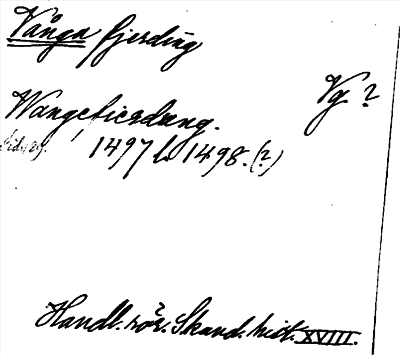 Vånga fjerding
Vg ?
Wangefierdung.
1497 l. 1498. (?)
Handl. rör. Skand. hist. XVIII.